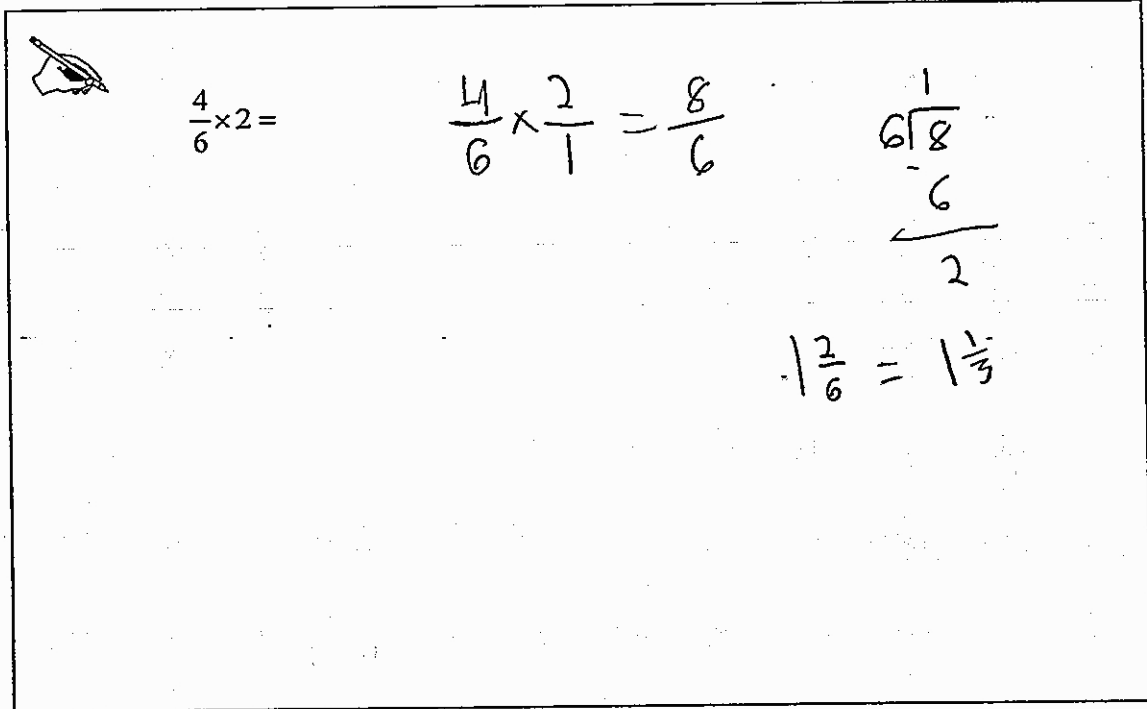 4/6 × 2 =
4/6 × 2/1 = 8/6
1
6⟌8
- 6
2
1 2/6 = 1 1/3